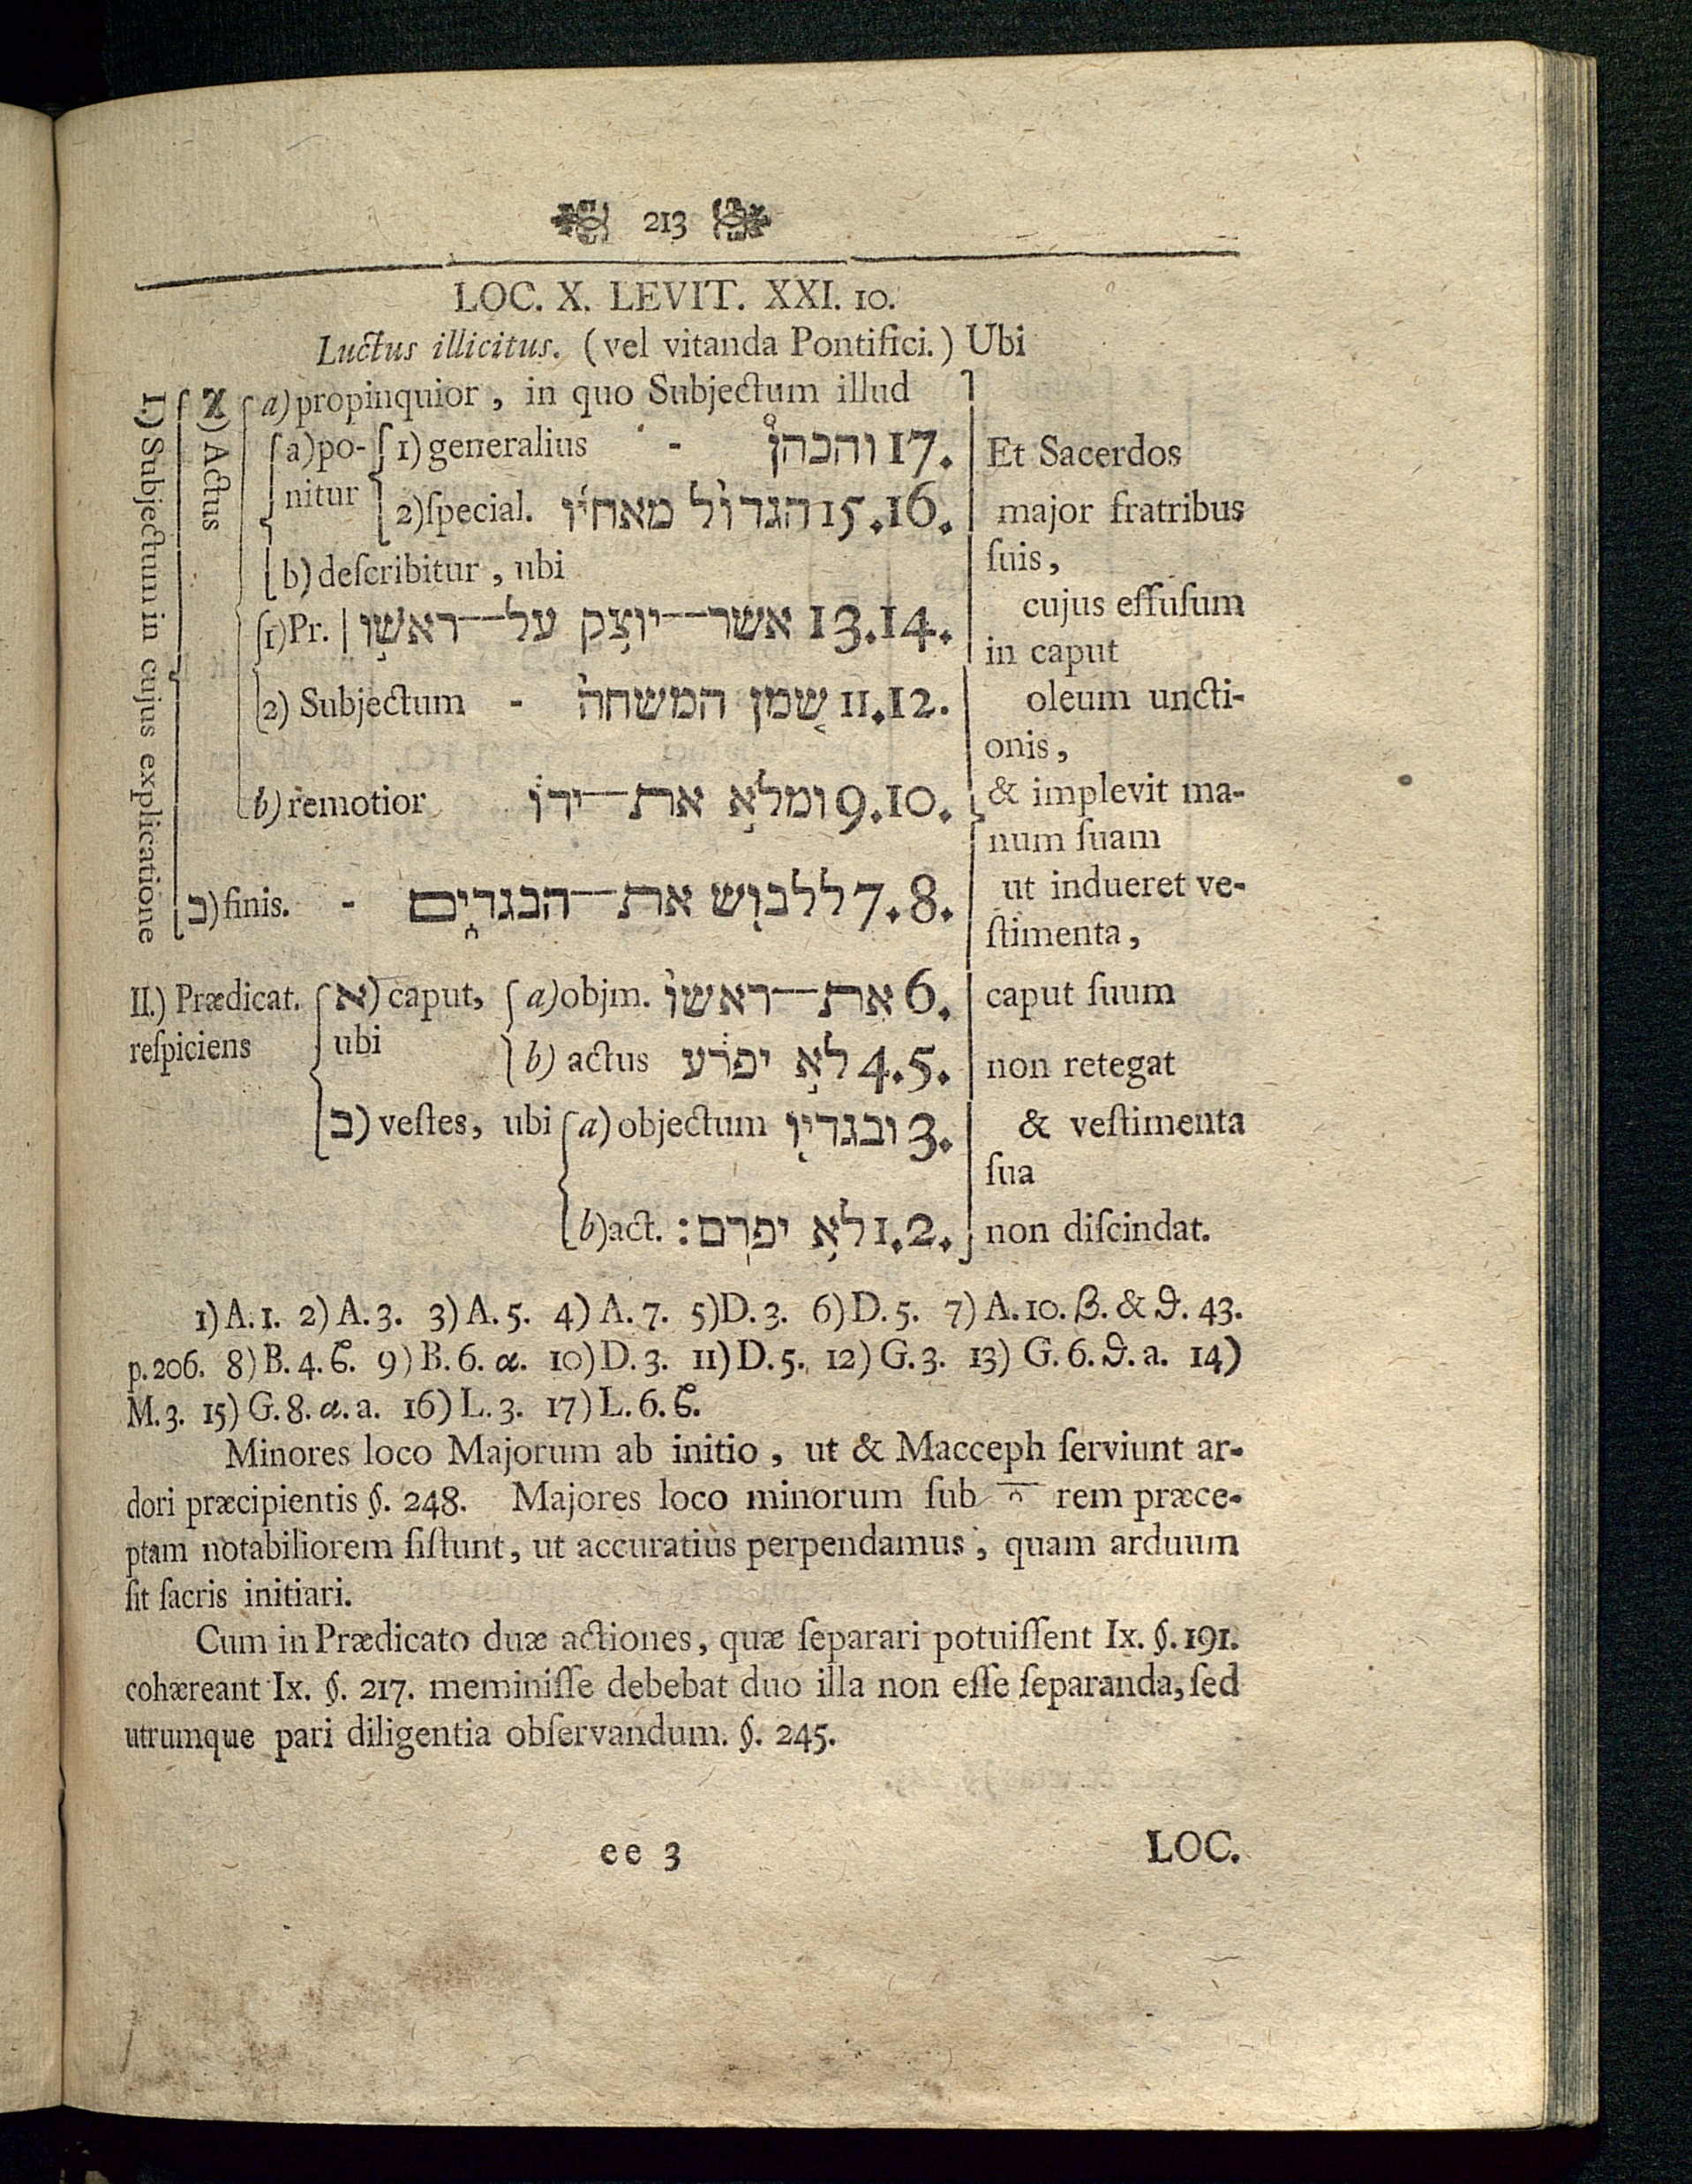 213
LOC. X. LEVIT. XXI. 10.
Luctus illicitus. (vel vitanda Pontifici.) Ubi
I.) Subjectum in cujus explicatione
א) Actus
a) propinquior, in quo Subjectum illud
a) po- 1) generalius - והכהן 17. Et Sacerdos
nitur 2) ſpecial. הגדול מאחיו 15. 16. major fratribus
b) deſcribitur, ubi ſuis,
1) Pr. | אשר־יוצק על־ראשו 13. 14. cujus effuſum
in caput
2) Subjectum - שמן המשחה 11. 12. oleum uncti-
onis,
b) remotior ומלא את־ידו 9. 10. & implevit ma-
num ſuam
ב) finis. - ללבוש את־הבגדים 7. 8. ut indueret ve-
ſtimenta,
II.) Prædicat. א) caput, a) objm. את־ראשו 6. caput ſuum
reſpiciens ubi b) actus לא יפרע 4. 5. non retegat
ב) veſtes, ubi a) objectum ובגדיו 3. & veſtimenta
ſua
b) act. לא יפרם: 1. 2. non diſcindat.
1) A. 1. 2) A. 3. 3) A. 5. 4) A. 7. 5) D. 3. 6) D. 5. 7) A. 10. β. & ϑ. 43.
p. 206. 8) B. 4. ϐ. 9) B. 6. α. 10) D. 3. 11) D. 5. 12) G. 3. 13) G. 6. ϑ. a. 14)
M. 3. 15) G. 8. α. a. 16) L. 3. 17) L. 6. ϐ.
Minores loco Majorum ab initio, ut & Macceph ſerviunt ar-
dori præcipientis §. 248. Majores loco minorum ſub rem præce-
ptam notabiliorem ſiſtunt, ut accuratius perpendamus, quam arduum
ſit ſacris initiari.
Cum in Prædicato duæ actiones, quæ ſeparari potuiſſent Ix. §. 191.
cohæreant Ix. §. 217. meminiſſe debebat duo illa non eſſe ſeparanda, ſed
utrumque pari diligentia obſervandum. §. 245.
ee 3 LOC.